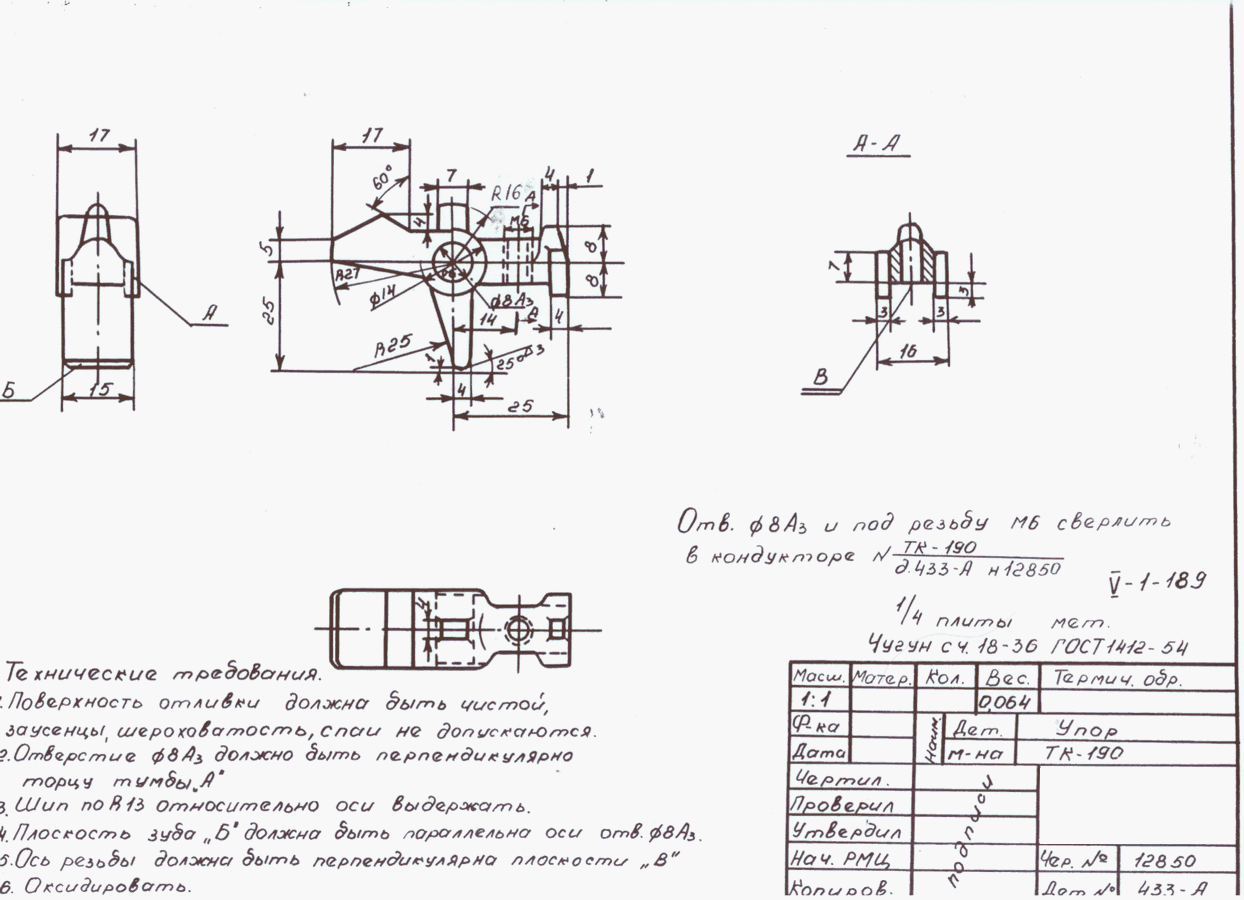 17
А
Б
15
17
60°
7
R16
А
4
1
М6
4
5
8
8
R27
ϕ14
ϕ8А₃
25
14
А
4
R25
1
25°
3
4
25
А-А
7
3
3
3
16
В
Отв. ϕ8А₃ и под резьбу М6 сверлить
в кондукторе N ТК-190
д.433-А н12850
V-1-189
1/4 плиты мет.
Чугун сч.18-36 ГОСТ1412-54
4
Технические требования.
1.Поверхность отливки должна быть чистой,
заусенцы, шероховатость, спаи не допускаются.
2.Отверстие ϕ8А₃ должно быть перпендикулярно
торцу тумбы„А"
3. Шип по R13 относительно оси выдержать.
4.Плоскость зуба „Б" должна быть параллельна оси отв.ϕ8А₃.
5.Ось резьбы должна быть перпендикулярна плоскости „В"
6. Оксидировать.
Масш. Матер. Кол. Вес. Термич. обр.
1:1 0,064
Ф-ка Наим. Дет. Упор
Дата м-на ТК-190
Чертил.
Проверил
Утвердил
подписи
Нач. РМЦ Чер. № 12850
Копиров. Дет № 433-А